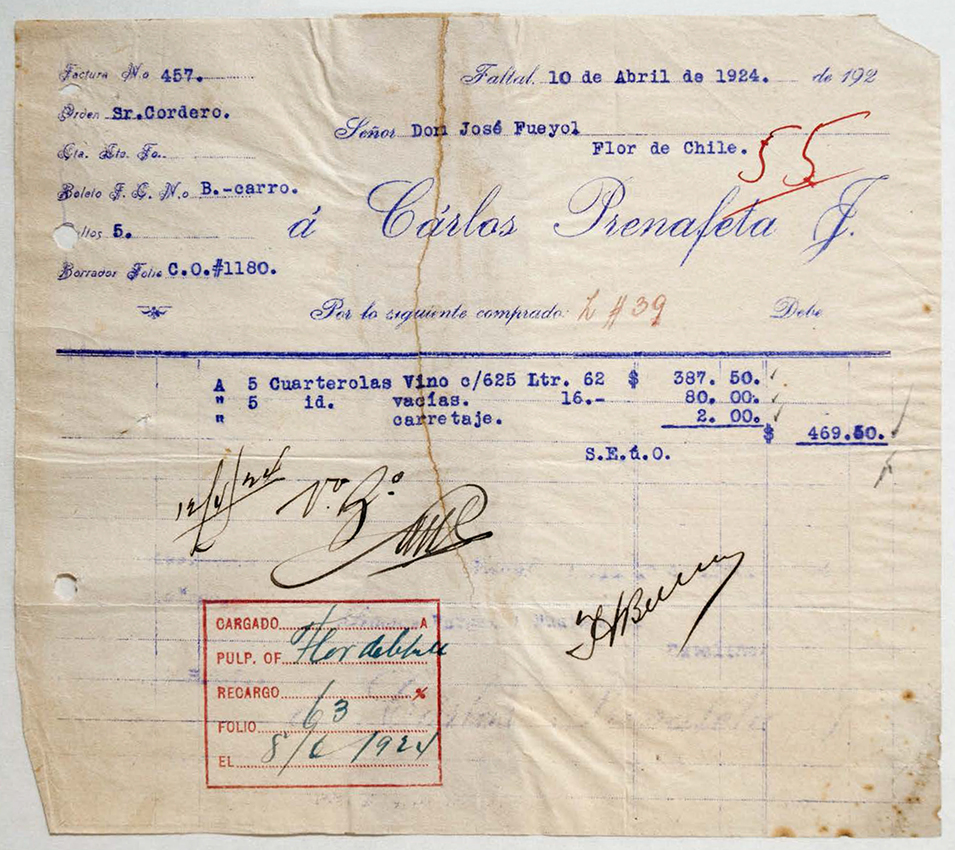 Factura No 457.
Taltal, 10 de Abril de 1924. de 192
Orden Sr.Cordero.
Señor Don José Fueyol
Flor de Chile.
55
Cta. Cto. Fo.
Boleto F. C. No B.-carro.
Bultos 5.
á Cárlos Prenafeta J.
Borrador Folio C.O.#1180.
Por lo siguiente comprado: L # 39 Debe
A 5 Cuarterolas Vino c/625 Ltr. 62 $ 387. 50.
" 5 id. vacías. 16.- 80. 00.
" carretaje. 2. 00.
$ 469.50.
S.E.ú.O.
12/4/24 Vo Bo
CARGADO A
PULP. OF Flor de Chile
RECARGO %
FOLIO 63
EL 8/6 1924